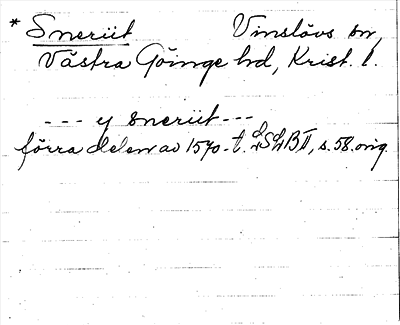 * Sneriit Vinslövs sn,
Västra Göinge hd, Krist. l.
--- y sneriit ---
förra delen av 1570-t. LSkB II, s. 58. orig.